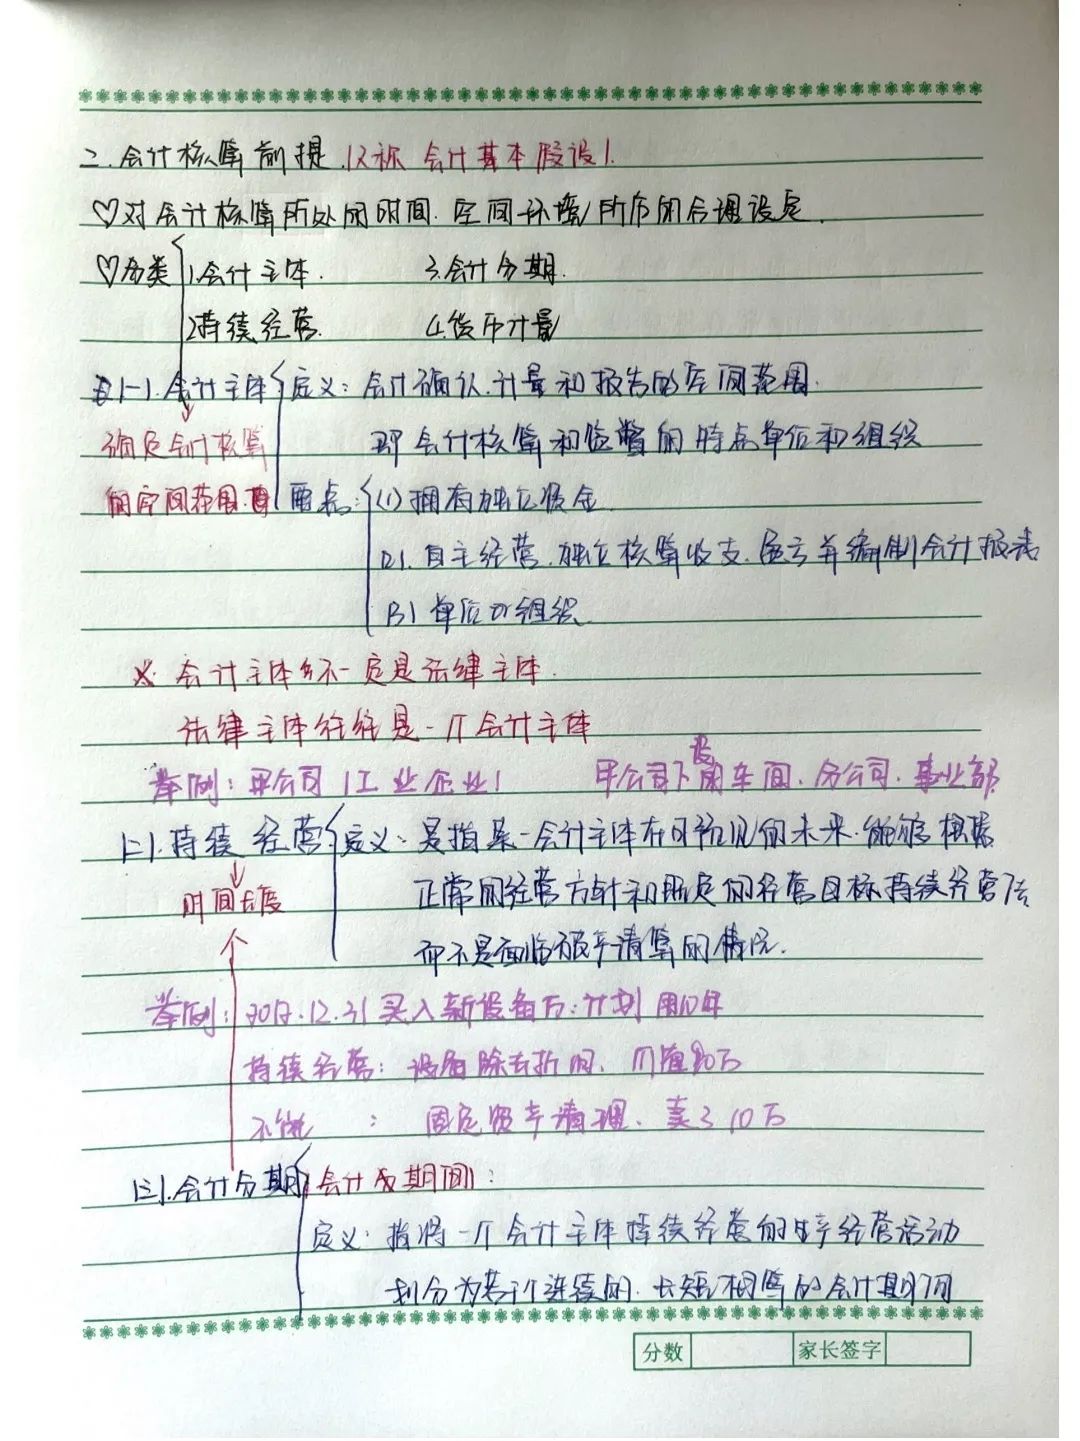 二.会计核算前提.(又称 会计基本假设).
♡对会计核算所处的时间.空间环境所作的合理设定.
♡分类 1.会计主体. 3.会计分期.
2.持续经营. 4.货币计量
(一).会计主体 定义:会计确认.计量和报告的空间范围.
即会计核算和监督的特点单位和组织
确定会计核算
的空间范围. 要点:(1)拥有独立资金
(2).自主经营.独立核算收支.盈亏并编制会计报表
(3)单位or组织
※会计主体 不一定是法律主体.
法律主体往往是一个会计主体
举例:甲公司(工业企业) 甲公司下设的车间.分公司.事业部
(二).持续经营 定义:是指某一会计主体在可预见的未来.能够根据
正常的经营方针和既定的经营目标持续经营下去
时间长度
而不是面临破产清算的情况.
举例: 12.31买入新设备 万:计划用10年
持续经营:设备除去折旧、价值90万
不能 : 固定资产清理、卖了10万
(三).会计分期 会计 期间:
定义:指将一个会计主体持续经营的生产经营活动
划分为若干个连续的.长短相等的会计期间
分数 家长签字